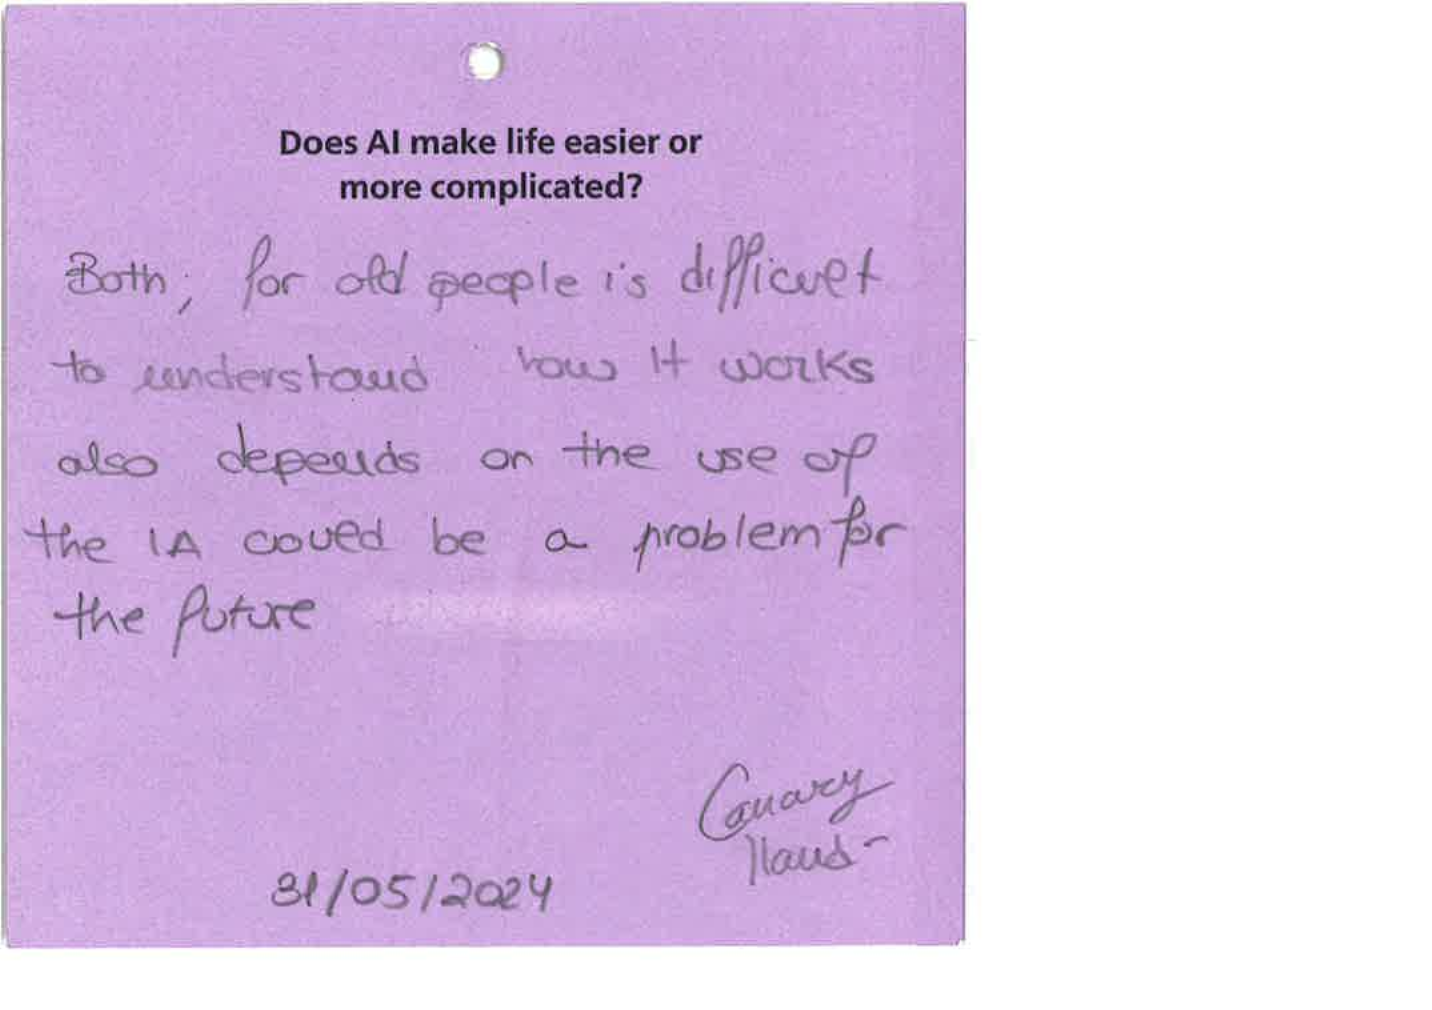 Does AI make life easier or
more complicated?
Both; for old people is difficult
to understand how it works
also depends on the use of
the IA could be a problem for
the future
Canary
Iland
31/05/2024